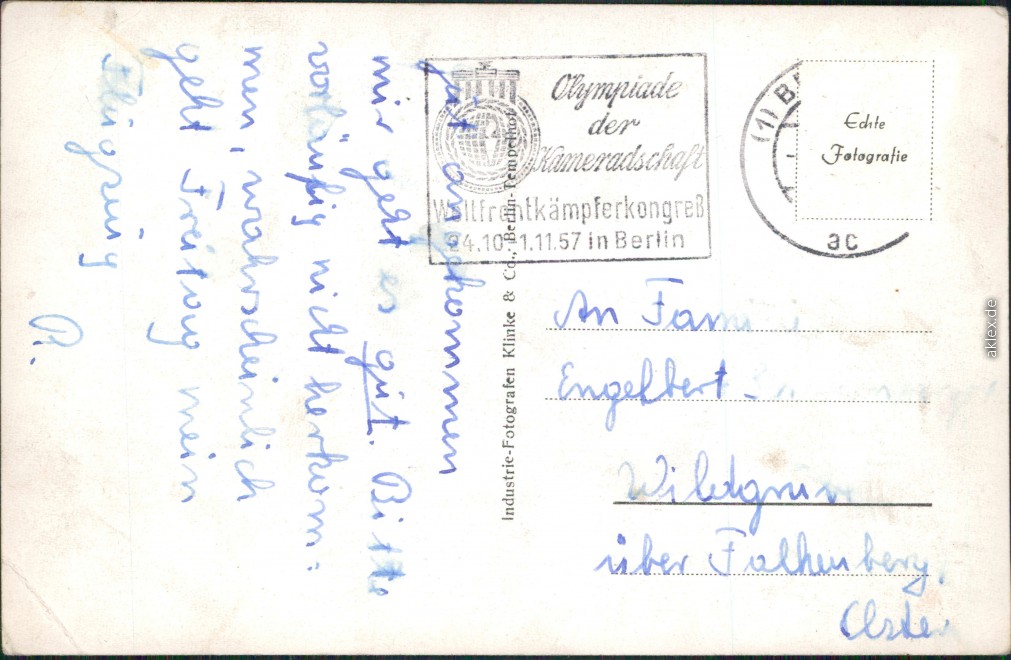 Gut angekommen
mir geht es gut. Bitte
vorläufig nicht herkom-
men, wahrscheinlich
geht Freitag mein
Flugzeug
R.
Industrie-Fotografen Klinke & Co., Berlin-Tempelhof
Olympiade
der
Kameradschaft
Weltfrontkämpferkongreß
24.10 1.11.57 in Berlin
(1) B
ac
Echte
Fotografie
An Fami
Engelbert
über Falkenberg,
Elster
aklex.de